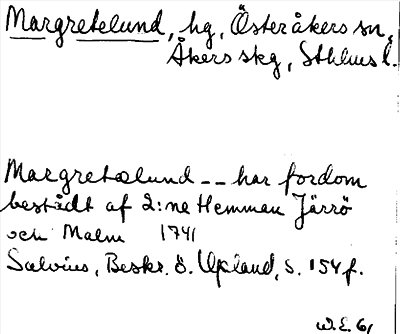 Margretelund, hg, Österåkers sn,
Åkers skg, Sthlms l.
Margretælund -- har fordom
bestådt af 2:ne Hemman Järrö
och Malm 1741
Salvius, Beskr. ö. Upland, s. 154 f.
W.E. 61